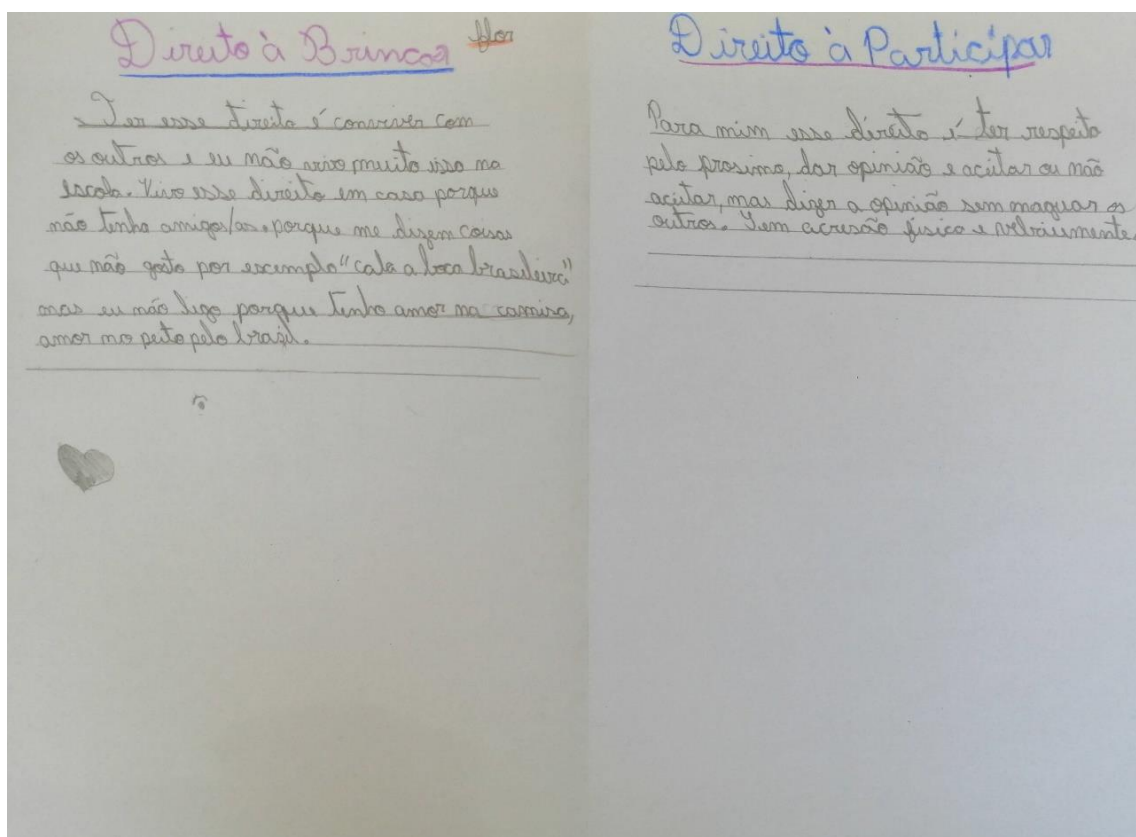 Direito à Brincar
flor
Ter esse direito é conviver com
os outros e eu não vivo muito isso na
escola. Vivo esse direito em casa porque
não tenho amigos/as. porque me dizem coisas
que não gosto por escemplo "cala a boca brasileira"
mas eu não ligo porque tenho amor na camisa,
amor no peito pelo brasil.
Direito à Participar
Para mim esse direito é ter respeito
pelo prosimo, dar opinião e aceitar ou não
aceitar, mas dizer a opinião sem maguar os
outros. Sem acresão físico e